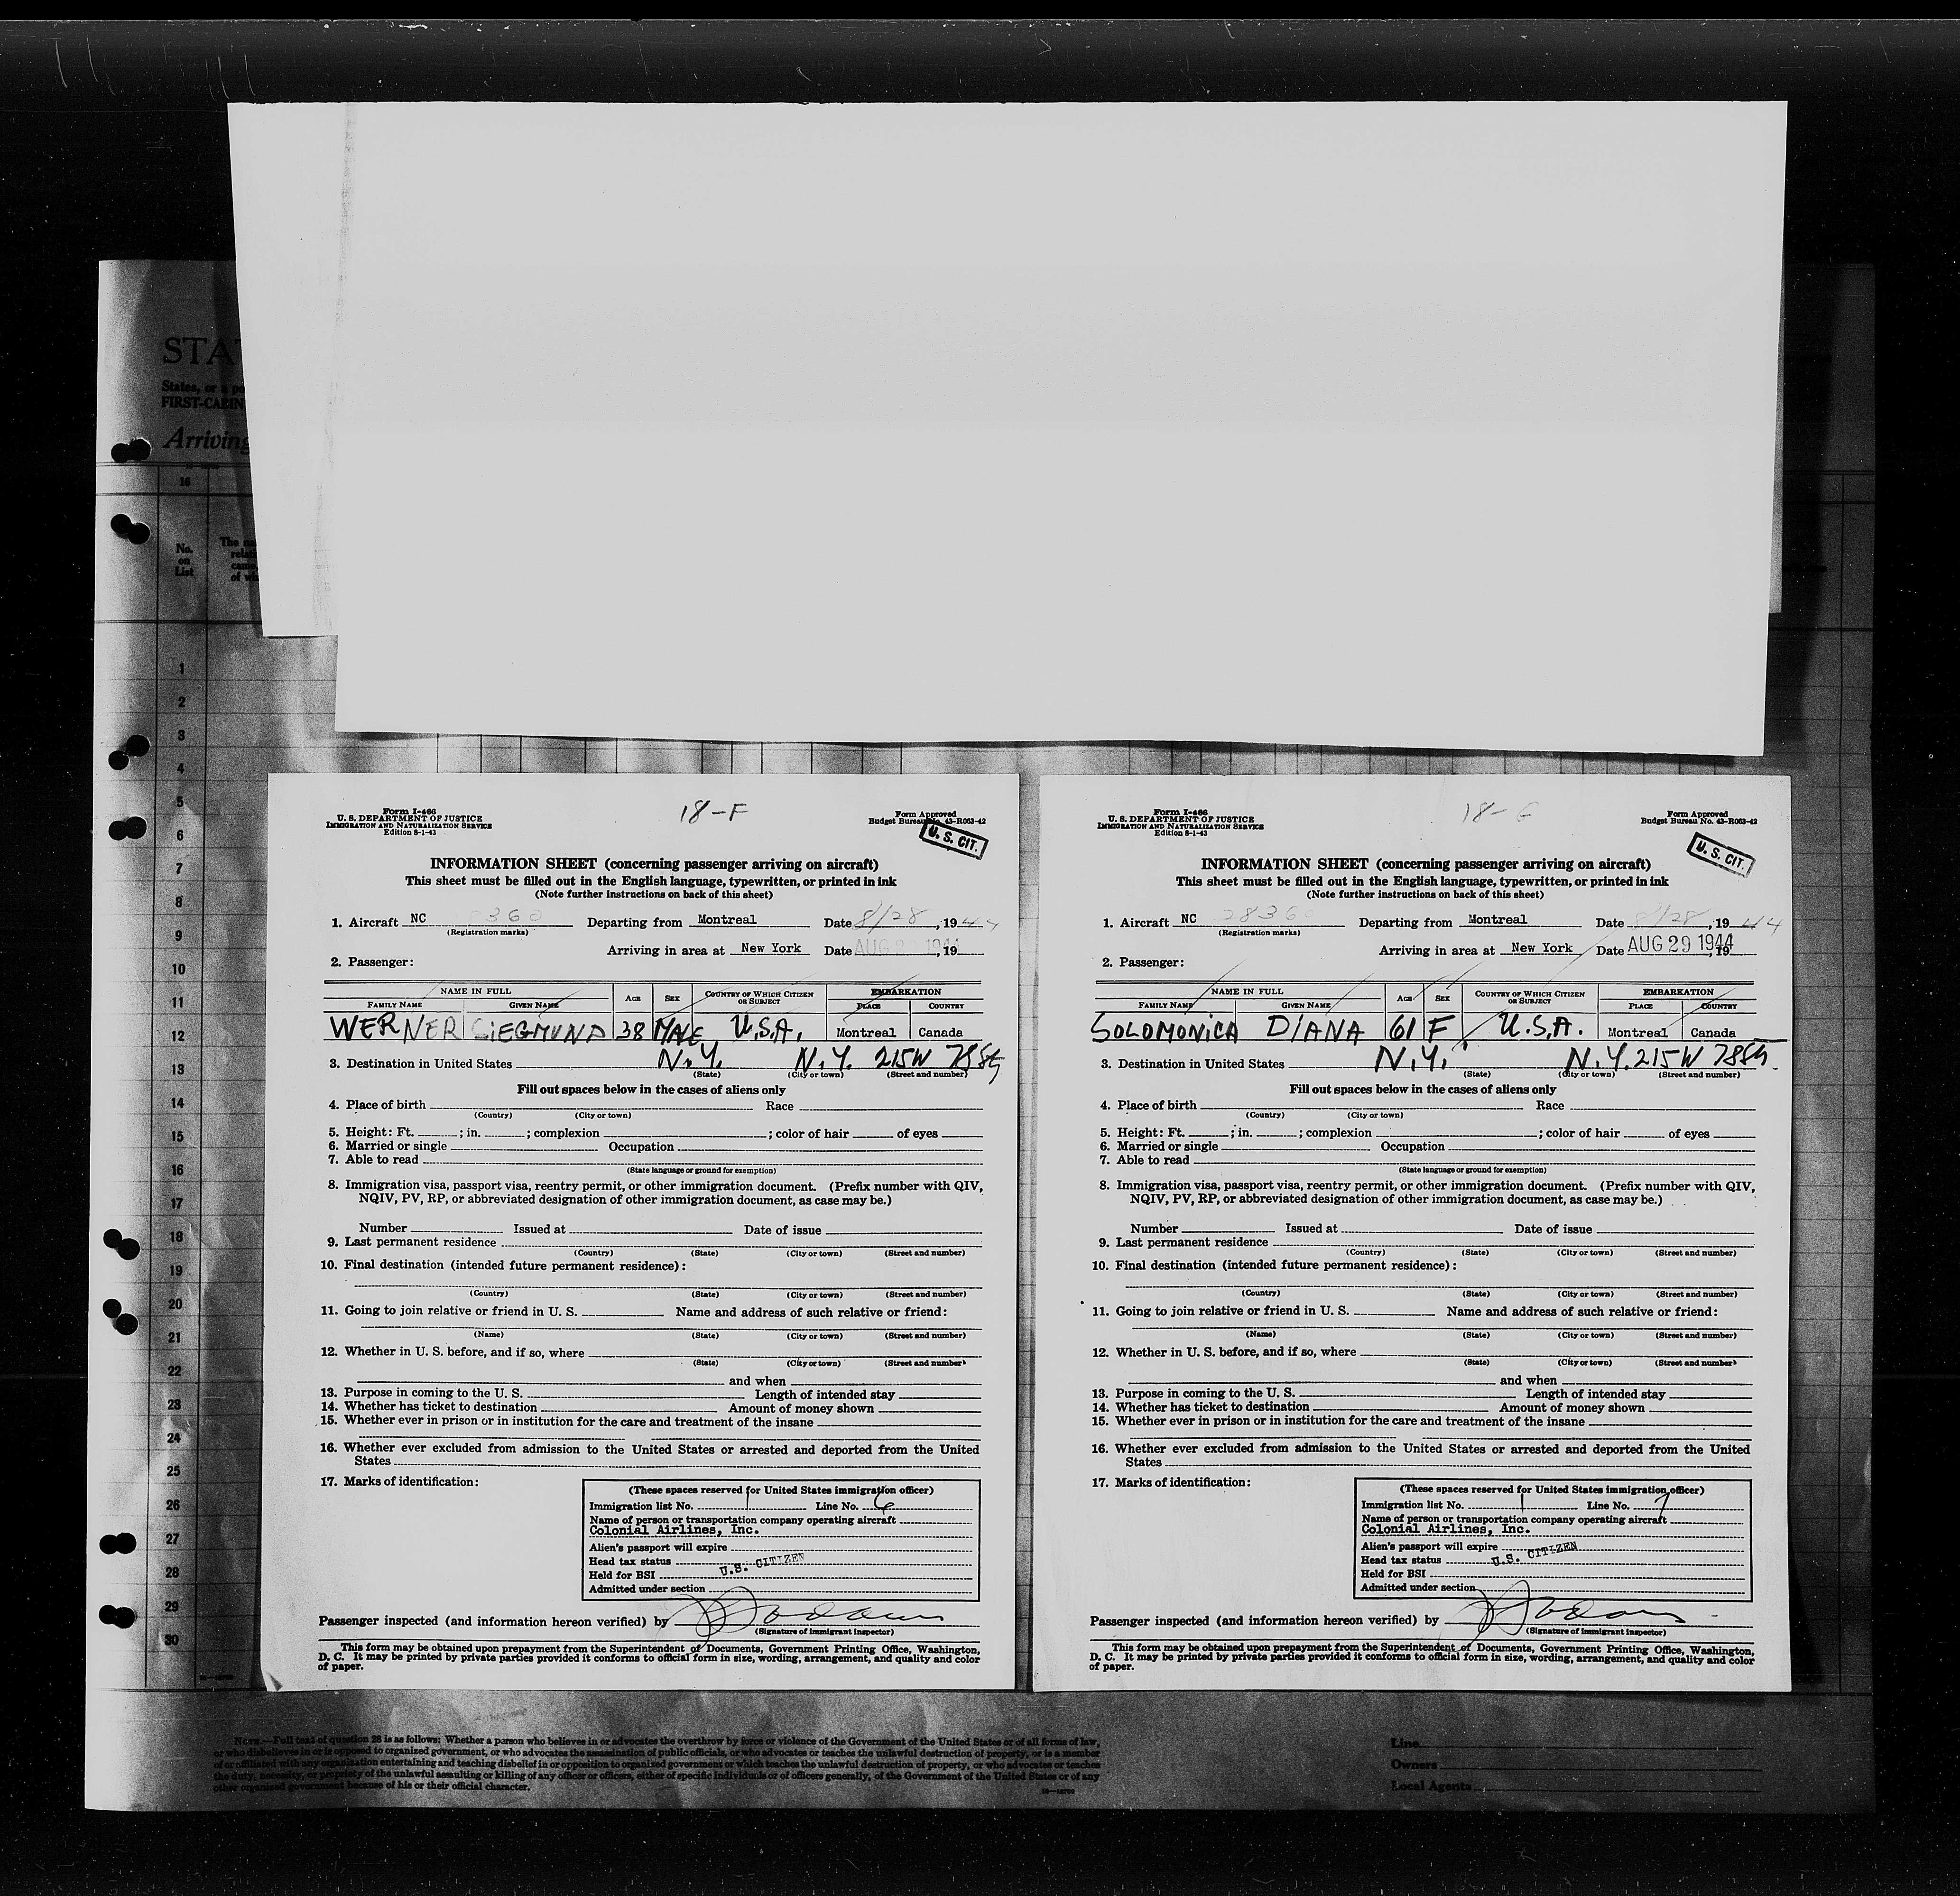 STAT
States, or a po
FIRST-CABIN
Arriving
16
No.
on
List
The na
relati
came
of wh
1
2
3
4
5
6
7
8
9
10
11
12
13
14
15
16
17
18
19
20
21
22
23
24
25
26
27
28
29
30
Form I-466
U. S. DEPARTMENT OF JUSTICE
IMMIGRATION AND NATURALIZATION SERVICE
Edition 8-1-43
18-F
Form Approved
Budget Bureau No. 43-R063-42
U. S. CIT.
INFORMATION SHEET (concerning passenger arriving on aircraft)
This sheet must be filled out in the English language, typewritten, or printed in ink
(Note further instructions on back of this sheet)
1. Aircraft NC 360 Departing from Montreal Date 8/28, 1944
(Registration marks)
Arriving in area at New York Date AUG 1944, 19
2. Passenger:
NAME IN FULL AGE SEX COUNTRY OF WHICH CITIZEN OR SUBJECT EMBARKATION
FAMILY NAME GIVEN NAME PLACE COUNTRY
WERNER SIEGMUND 38 MALE U.S.A. Montreal Canada
3. Destination in United States N.Y. N.Y. 215W 78St
(State) (City or town) (Street and number)
Fill out spaces below in the cases of aliens only
4. Place of birth Race
(Country) (City or town)
5. Height: Ft. ; in. ; complexion ; color of hair of eyes
6. Married or single Occupation
7. Able to read
(State language or ground for exemption)
8. Immigration visa, passport visa, reentry permit, or other immigration document. (Prefix number with QIV,
NQIV, PV, RP, or abbreviated designation of other immigration document, as case may be.)
Number Issued at Date of issue
9. Last permanent residence
(Country) (State) (City or town) (Street and number)
10. Final destination (intended future permanent residence):
(Country) (State) (City or town) (Street and number)
11. Going to join relative or friend in U. S. Name and address of such relative or friend:
(Name) (State) (City or town) (Street and number)
12. Whether in U. S. before, and if so, where
(State) (City or town) (Street and number)
and when
13. Purpose in coming to the U. S. Length of intended stay
14. Whether has ticket to destination Amount of money shown
15. Whether ever in prison or in institution for the care and treatment of the insane
16. Whether ever excluded from admission to the United States or arrested and deported from the United
States
17. Marks of identification:
(These spaces reserved for United States immigration officer)
Immigration list No. 1 Line No. 6
Name of person or transportation company operating aircraft
Colonial Airlines, Inc.
Alien's passport will expire
Head tax status U.S. CITIZEN
Held for BSI
Admitted under section
Passenger inspected (and information hereon verified) by
(Signature of immigrant inspector)
This form may be obtained upon prepayment from the Superintendent of Documents, Government Printing Office, Washington,
D. C. It may be printed by private parties provided it conforms to official form in size, wording, arrangement, and quality and color
of paper.
Form I-466
U. S. DEPARTMENT OF JUSTICE
IMMIGRATION AND NATURALIZATION SERVICE
Edition 8-1-43
18-G
Form Approved
Budget Bureau No. 43-R063-42
U. S. CIT.
INFORMATION SHEET (concerning passenger arriving on aircraft)
This sheet must be filled out in the English language, typewritten, or printed in ink
(Note further instructions on back of this sheet)
1. Aircraft NC 28360 Departing from Montreal Date 8/28, 1944
(Registration marks)
Arriving in area at New York Date AUG 29 1944, 19
2. Passenger:
NAME IN FULL AGE SEX COUNTRY OF WHICH CITIZEN OR SUBJECT EMBARKATION
FAMILY NAME GIVEN NAME PLACE COUNTRY
SOLOMONICA DIANA 61 F U.S.A. Montreal Canada
3. Destination in United States N.Y. N.Y. 215W 78St
(State) (City or town) (Street and number)
Fill out spaces below in the cases of aliens only
4. Place of birth Race
(Country) (City or town)
5. Height: Ft. ; in. ; complexion ; color of hair of eyes
6. Married or single Occupation
7. Able to read
(State language or ground for exemption)
8. Immigration visa, passport visa, reentry permit, or other immigration document. (Prefix number with QIV,
NQIV, PV, RP, or abbreviated designation of other immigration document, as case may be.)
Number Issued at Date of issue
9. Last permanent residence
(Country) (State) (City or town) (Street and number)
10. Final destination (intended future permanent residence):
(Country) (State) (City or town) (Street and number)
11. Going to join relative or friend in U. S. Name and address of such relative or friend:
(Name) (State) (City or town) (Street and number)
12. Whether in U. S. before, and if so, where
(State) (City or town) (Street and number)
and when
13. Purpose in coming to the U. S. Length of intended stay
14. Whether has ticket to destination Amount of money shown
15. Whether ever in prison or in institution for the care and treatment of the insane
16. Whether ever excluded from admission to the United States or arrested and deported from the United
States
17. Marks of identification:
(These spaces reserved for United States immigration officer)
Immigration list No. 1 Line No. 7
Name of person or transportation company operating aircraft
Colonial Airlines, Inc.
Alien's passport will expire
Head tax status U.S. CITIZEN
Held for BSI
Admitted under section
Passenger inspected (and information hereon verified) by
(Signature of immigrant inspector)
This form may be obtained upon prepayment from the Superintendent of Documents, Government Printing Office, Washington,
D. C. It may be printed by private parties provided it conforms to official form in size, wording, arrangement, and quality and color
of paper.
NOTE.—Full text of question 28 is as follows: Whether a person who believes in or advocates the overthrow by force or violence of the Government of the United States or of all forms of law,
or who disbelieves in or is opposed to organized government, or who advocates the assassination of public officials, or who advocates or teaches the unlawful destruction of property, or is a member
of or affiliated with any organization entertaining and teaching disbelief in or opposition to organized government or which teaches the unlawful destruction of property, or who advocates or teaches
the duty, necessity, or propriety of the unlawful assaulting or killing of any officer or officers, either of specific individuals or of officers generally, of the Government of the United States or of any
other organized government because of his or their official character.
Line
Owners
Local Agents